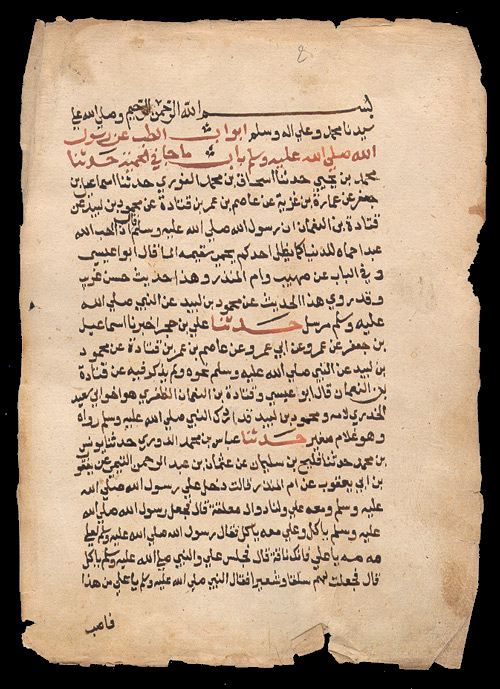 بسم الله الرحمن الرحيم وصلى الله على
سيدنا محمد وعلى اله وسلم ابواب الطب عن رسول
الله صلى الله عليه وسلم باب ما جا في الحمية حدثنا
محمد بن يحيى حدثنا اسحاق بن محمد الفروي حدثنا اسماعيل بن
جعفر عن عمارة بن غزية عن عاصم بن عمر بن قتادة عن محمود بن لبيد عن
قتادة بن النعمان ان رسول الله صلى الله عليه وسلم قال اذا احب الله
عبدا حماه الدنيا كما يظل احدكم يحمي سقيمه الما قال ابو عيسى
وفي الباب عن صهيب وام المنذر وهذا حديث حسن غريب
وقد روي هذا الحديث عن محمود بن لبيد عن النبي صلى الله
عليه وسلم مرسل حدثنا علي بن حجر اخبرنا اسماعيل
بن جعفر عن عمرو عن ابي عمرو عن عاصم بن عمر بن قتادة عن محمود
بن لبيد عن النبي صلى الله عليه وسلم نحوه ولم يذكر فيه عن قتادة
بن النعمان قال ابو عيسى وقتادة بن النعمان الظفري هو اخو ابي سعيد
الخدري لامه ومحمود بن لبيد قد ادرك النبي صلى الله عليه وسلم وراه
وهو غلام صغير حدثنا عباس بن محمد الدوري حدثنا يونس
بن محمد حدثنا فليح بن سليمان عن عثمان بن عبد الرحمن التيمي عن يعقو
بن ابي يعقوب عن ام المنذر قالت دخل علي رسول الله صلى الله
عليه وسلم ومعه علي ولنا دوال معلقة قال فجعل رسول الله صلى الله
عليه وسلم ياكل وعلي معه ياكل فقال رسول الله صلى الله عليه وسلم لعلي
مه مه يا علي فانك ناقة قال فجلس علي والنبي صلى الله عليه وسلم ياكل
قال فجعلت لهم سلقا وشعيرا فقال النبي صلى الله عليه وسلم يا علي من هذا
فاصب